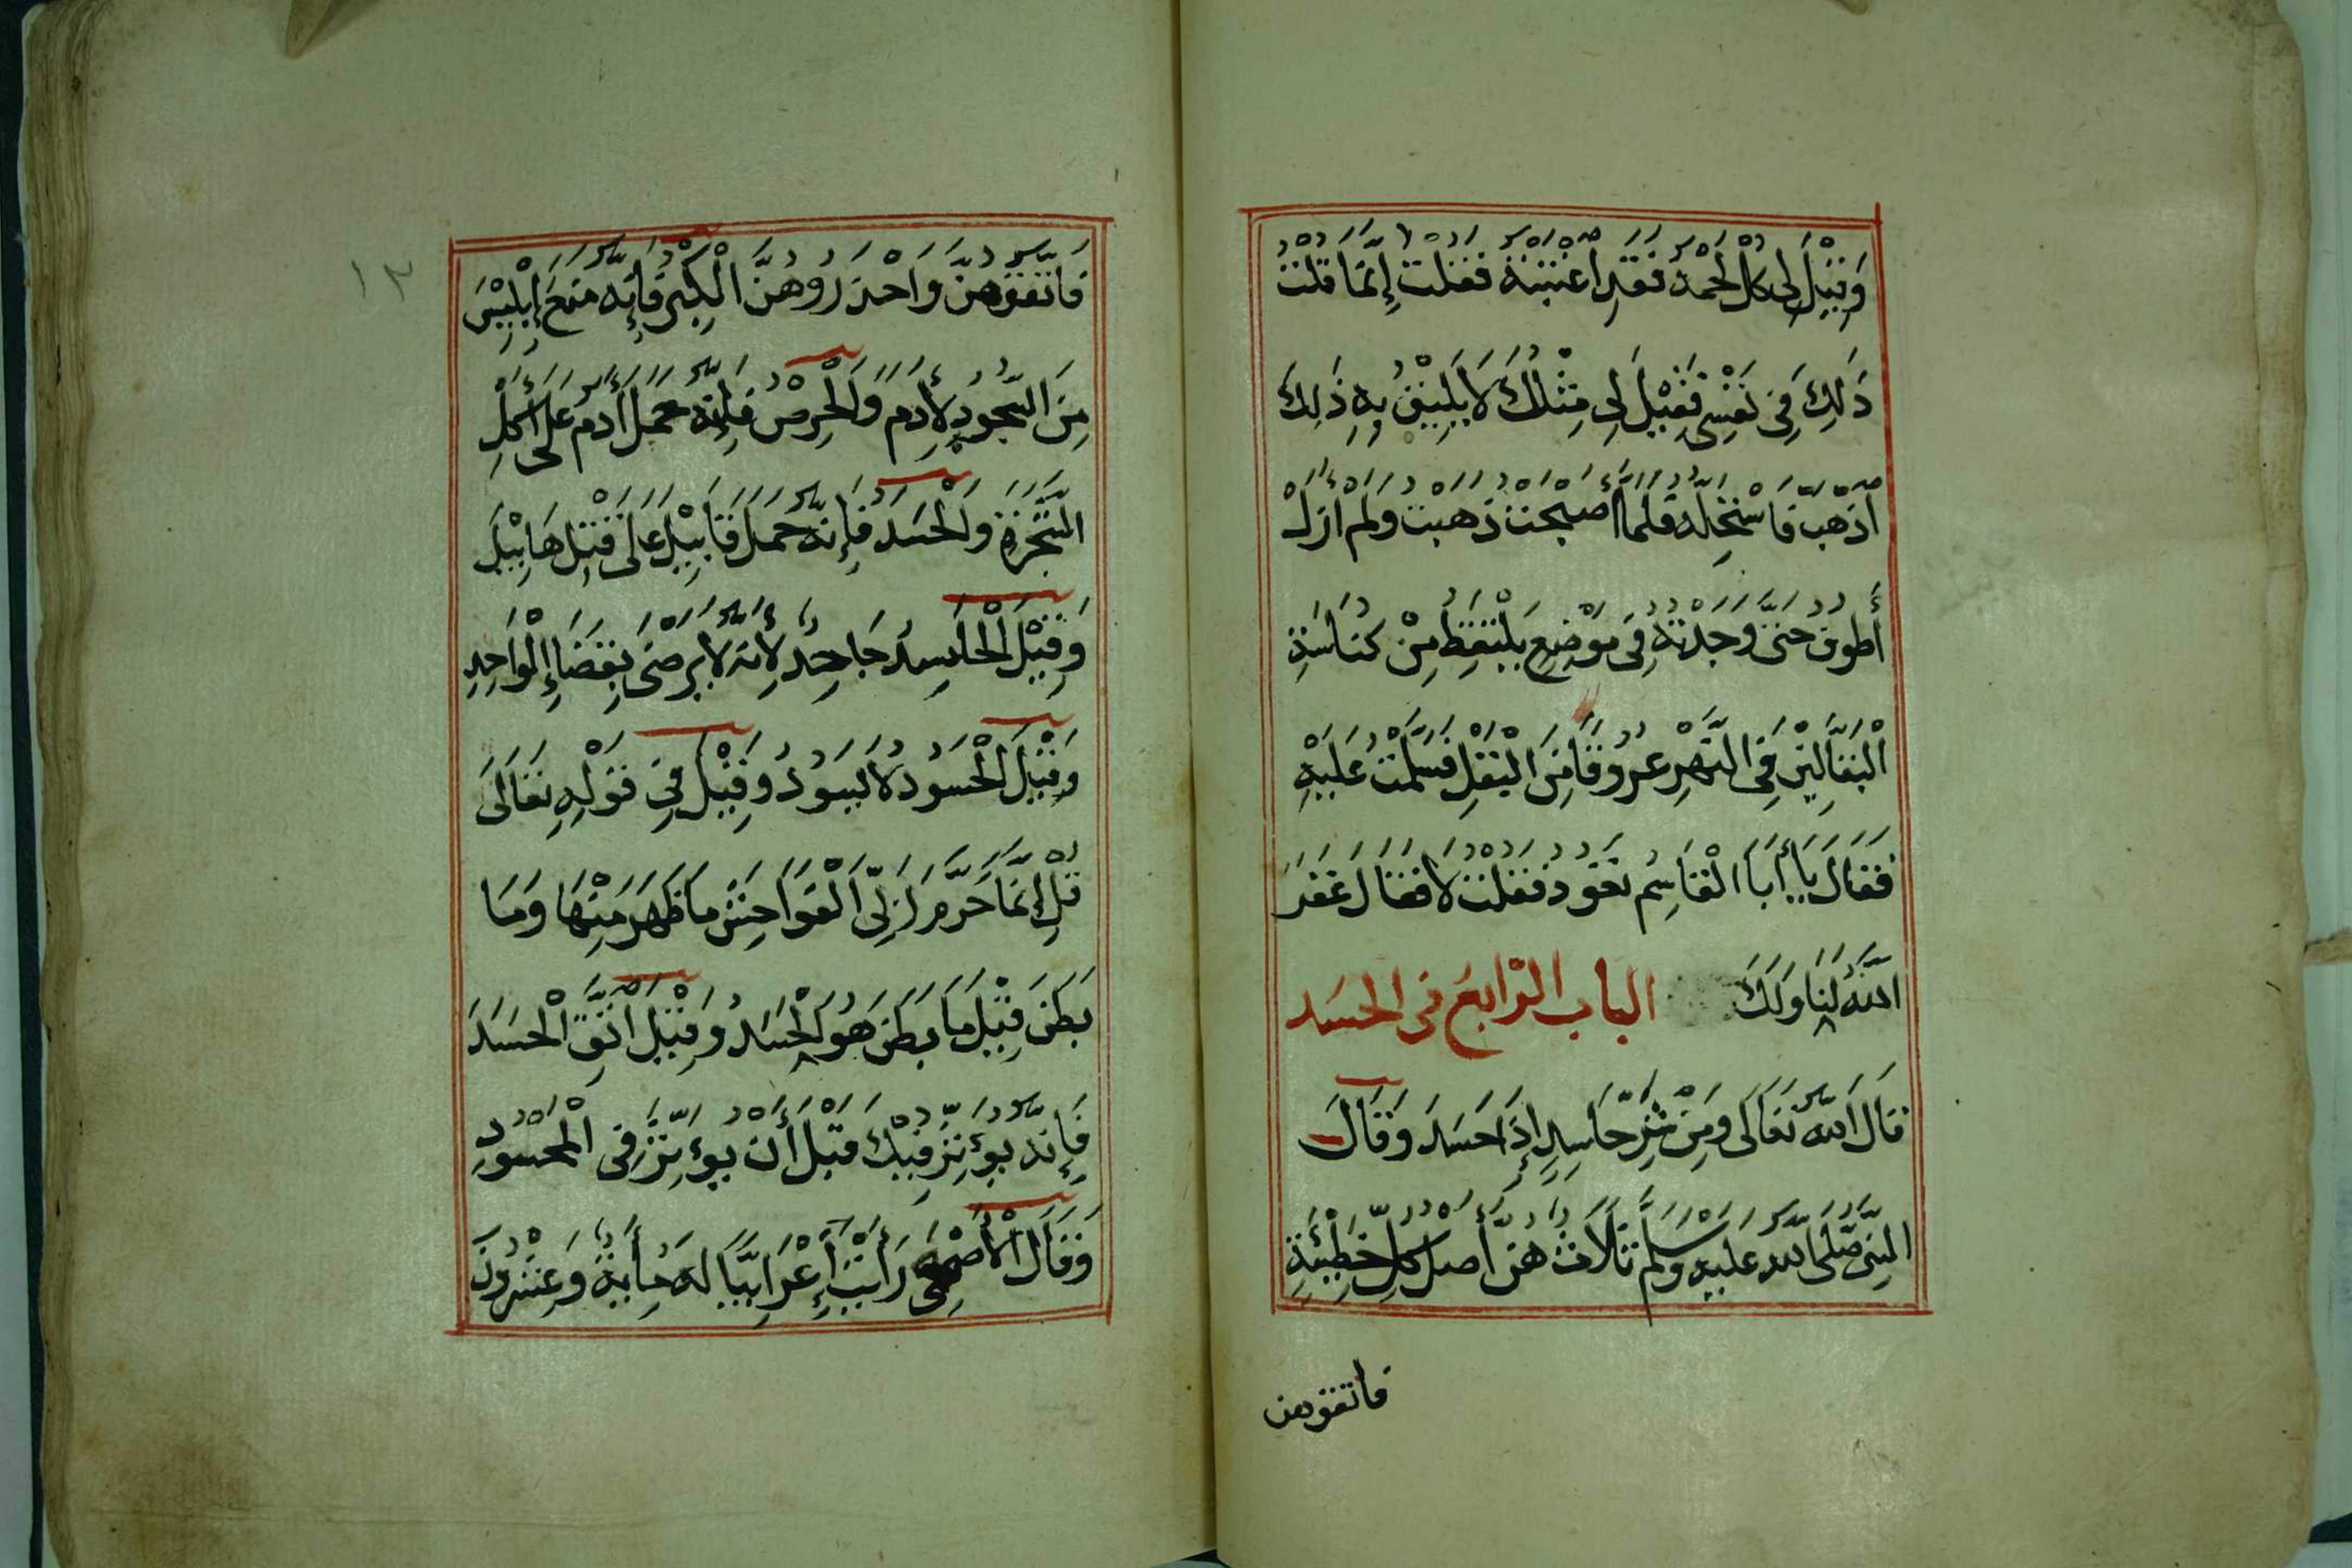 وَقِيْلَ لِى كُلْ لَحْمَهُ فَقَدِ اغْتَبْتَهُ فَقُلْتُ إِنَّمَا قُلْتُ
ذَلِكَ فِى نَفْسِى فَقِيْلَ لِى مِثْلُكَ لَا يَلِيْقُ بِهِ ذَلِكَ
اذْهَبْ فَاسْتَحِلَّهُ فَلَمَّا أَصْبَحْتُ ذَهَبْتُ وَلَمْ أَزَلْ
أَطُوفُ حَتَّى وَجَدْتُهُ فِى مَوْضِعٍ يَلْتَقِطُ مِنْ كُنَاسَةِ
الْبَقَّالِيْنَ فِى النَّهْرِ عُرُوقًا مِنَ الْبَقْلِ فَسَلَّمْتُ عَلَيْهِ
فَقَالَ يَا أَبَا الْقَاسِمِ تَعُودُ فَقُلْتُ لَا فَقَالَ غَفَرَ
اللَّهُ لَنَا وَلَكَ الباب الرَّابِعُ فى الحَسَد
قَالَ اللَّهُ تَعَالَى وَمِنْ شَرِّ حَاسِدٍ إِذَا حَسَدَ وَقَالَ
النَّبِىُّ صَلَّى اللَّهُ عَلَيْهِ وَسَلَّمَ ثَلَاثٌ هُنَّ أَصْلُ كُلِّ خَطِيْئَةٍ
فاتقوهن
١٣
فَاتَّقُوهُنَّ وَاحْذَرُوهُنَّ الْكِبْرُ فَإِنَّهُ مَنَعَ إِبْلِيْسَ
مِنَ السُّجُودِ لِأَدَمَ وَالْحِرْصُ فَإِنَّهُ حَمَلَ أَدَمَ عَلَى أَكْلِ
الشَّجَرَةِ وَالْحَسَدُ فَإِنَّهُ حَمَلَ قَابِيْلَ عَلَى قَتْلِ هَابِيْلَ
وَقِيْلَ الْحَاسِدُ جَاحِدٌ لِأَنَّهُ لَا يَرْضَى بِقَضَاءِ الْوَاحِدِ
وَقِيْلَ الْحَسُودُ لَا يَسُودُ وَقِيْلَ فِى قَوْلِهِ تَعَالَى
قُلْ إِنَّمَا حَرَّمَ رَبِّىَ الْفَوَاحِشَ مَا ظَهَرَ مِنْهَا وَمَا
بَطَنَ قِيْلَ مَا بَطَنَ هُوَ الْحَسَدُ وَقِيْلَ اتَّقِ الْحَسَدَ
فَإِنَّهُ يُؤَثِّرُ فِيْكَ قَبْلَ أَنْ يُؤَثِّرَ فِى الْمَحْسُودِ
وَقَالَ الْأَصْمَعِى رَأَيْتُ أَعْرَابِيًّا لَهُ مِأَيَةٌ وَعِشْرُونَ